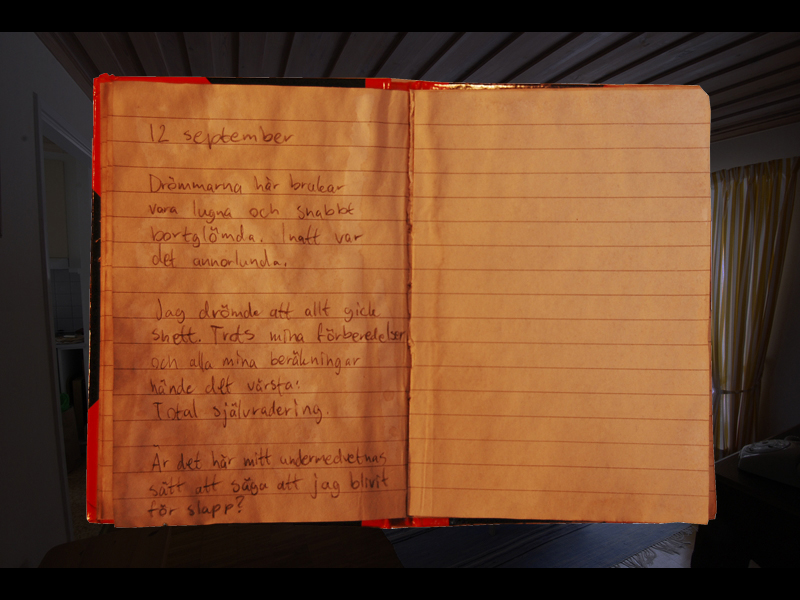 12 september
Drömmarna här brukar
vara lugna och snabbt
bortglömda. Inatt var
det annorlunda.
Jag drömde att allt gick
snett. Trots mina förberedelser
och alla mina beräkningar
hände det värsta:
Total självradering.
Är det här mitt undermedvetnas
sätt att säga att jag blivit
för slapp?